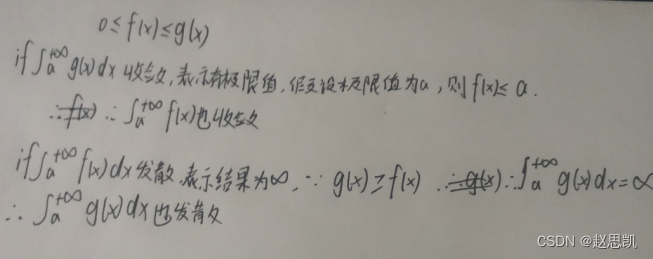 0≤f(x)≤g(x)
if∫ₐ⁺∞ g(x)dx收敛,表示有极限值,假设极限值为a,则f(x)≤a.
∴f(x) ∴∫ₐ⁺∞ f(x)也收敛
if∫ₐ⁺∞ f(x)dx发散,表示结果为∞,∵g(x)≥f(x) ∴g(x)∴∫ₐ⁺∞ g(x)dx=∞
∴∫ₐ⁺∞ g(x)dx也发散
CSDN @赵思凯